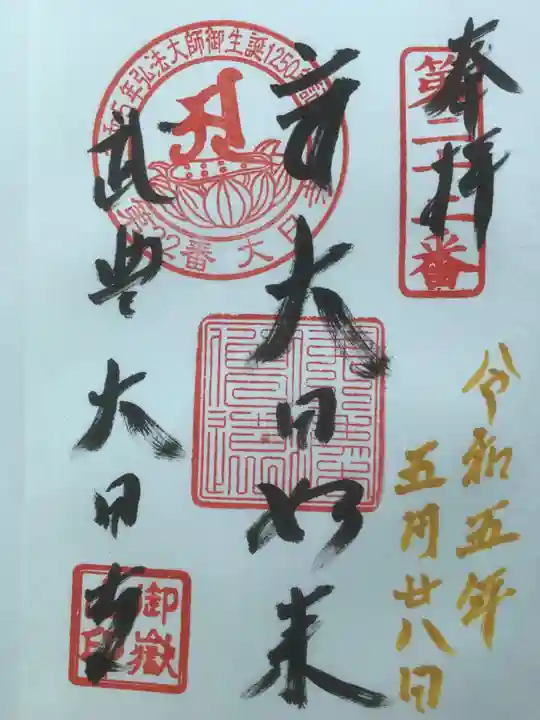 奉拝
第二十二番
令和五年
五月廿八日
大日如来
令和5年弘法大師御生誕1250年
第22番 大日
大日寺
御嶽
印